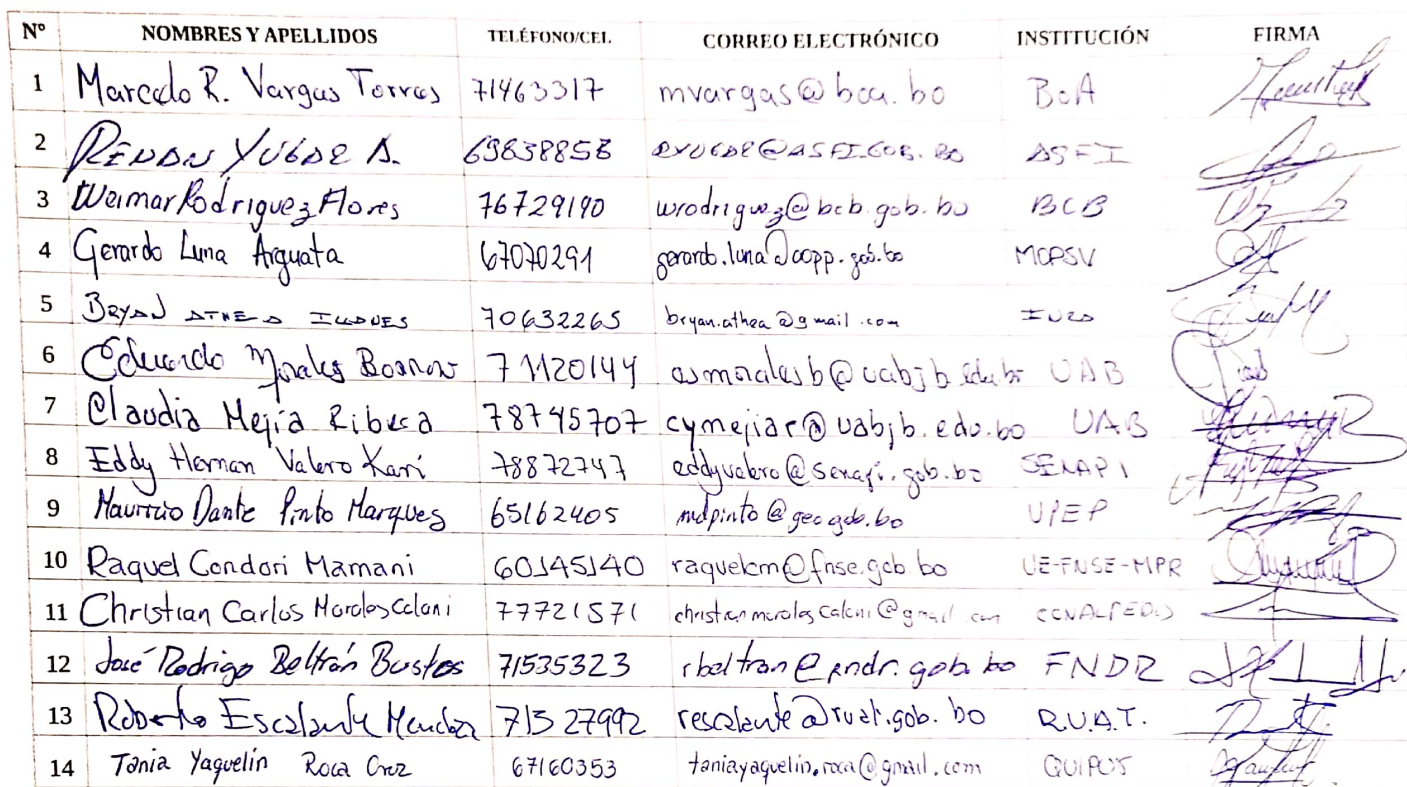 Nº NOMBRES Y APELLIDOS TELÉFONO/CEL. CORREO ELECTRÓNICO INSTITUCIÓN FIRMA
1 Marcelo R. Vargas Torres 71463317 mvargas@boa.bo BoA
2 RENAN YUGAR A. 69838858 RYUGAR@ASFI.GOB.BO ASFI
3 Weimar Rodriguez Flores 76729190 wrodriguez@bcb.gob.bo BCB
4 Gerardo Luna Arguata 67070291 gerardo.luna@oopp.gob.bo MOPSV
5 BRYAN ATHEA 70632265 bryan.athea@gmail.com
6 Eduardo Morales 71120144 UAB
7 Claudia Mejía Ribera 78745707 cymejiar@uabjb.edu.bo UAB
8 Eddy Hernan Valero Kari 78872747 eddyvalero@senapi.gob.bo SENAPI
9 Mauricio Dante Pinto Marques 65162405 mdpinto@geo.gob.bo UPEP
10 Raquel Condori Mamani 60145140 raquelcm@fnse.gob.bo UE-FNSE-MPR
11 Christian Carlos Morales Calani 77721571 christianmoralescalani@gmail.com
12 José Rodrigo Beltrán Bustos 71535323 rbeltran@fndr.gob.bo FNDR
13 Roberto Escalante Mendoza 71527992 rescalante@ruat.gob.bo R.U.A.T.
14 Tania Yaquelin Roca Cruz 67160353 taniayaquelin.roca@gmail.com QUIPUS